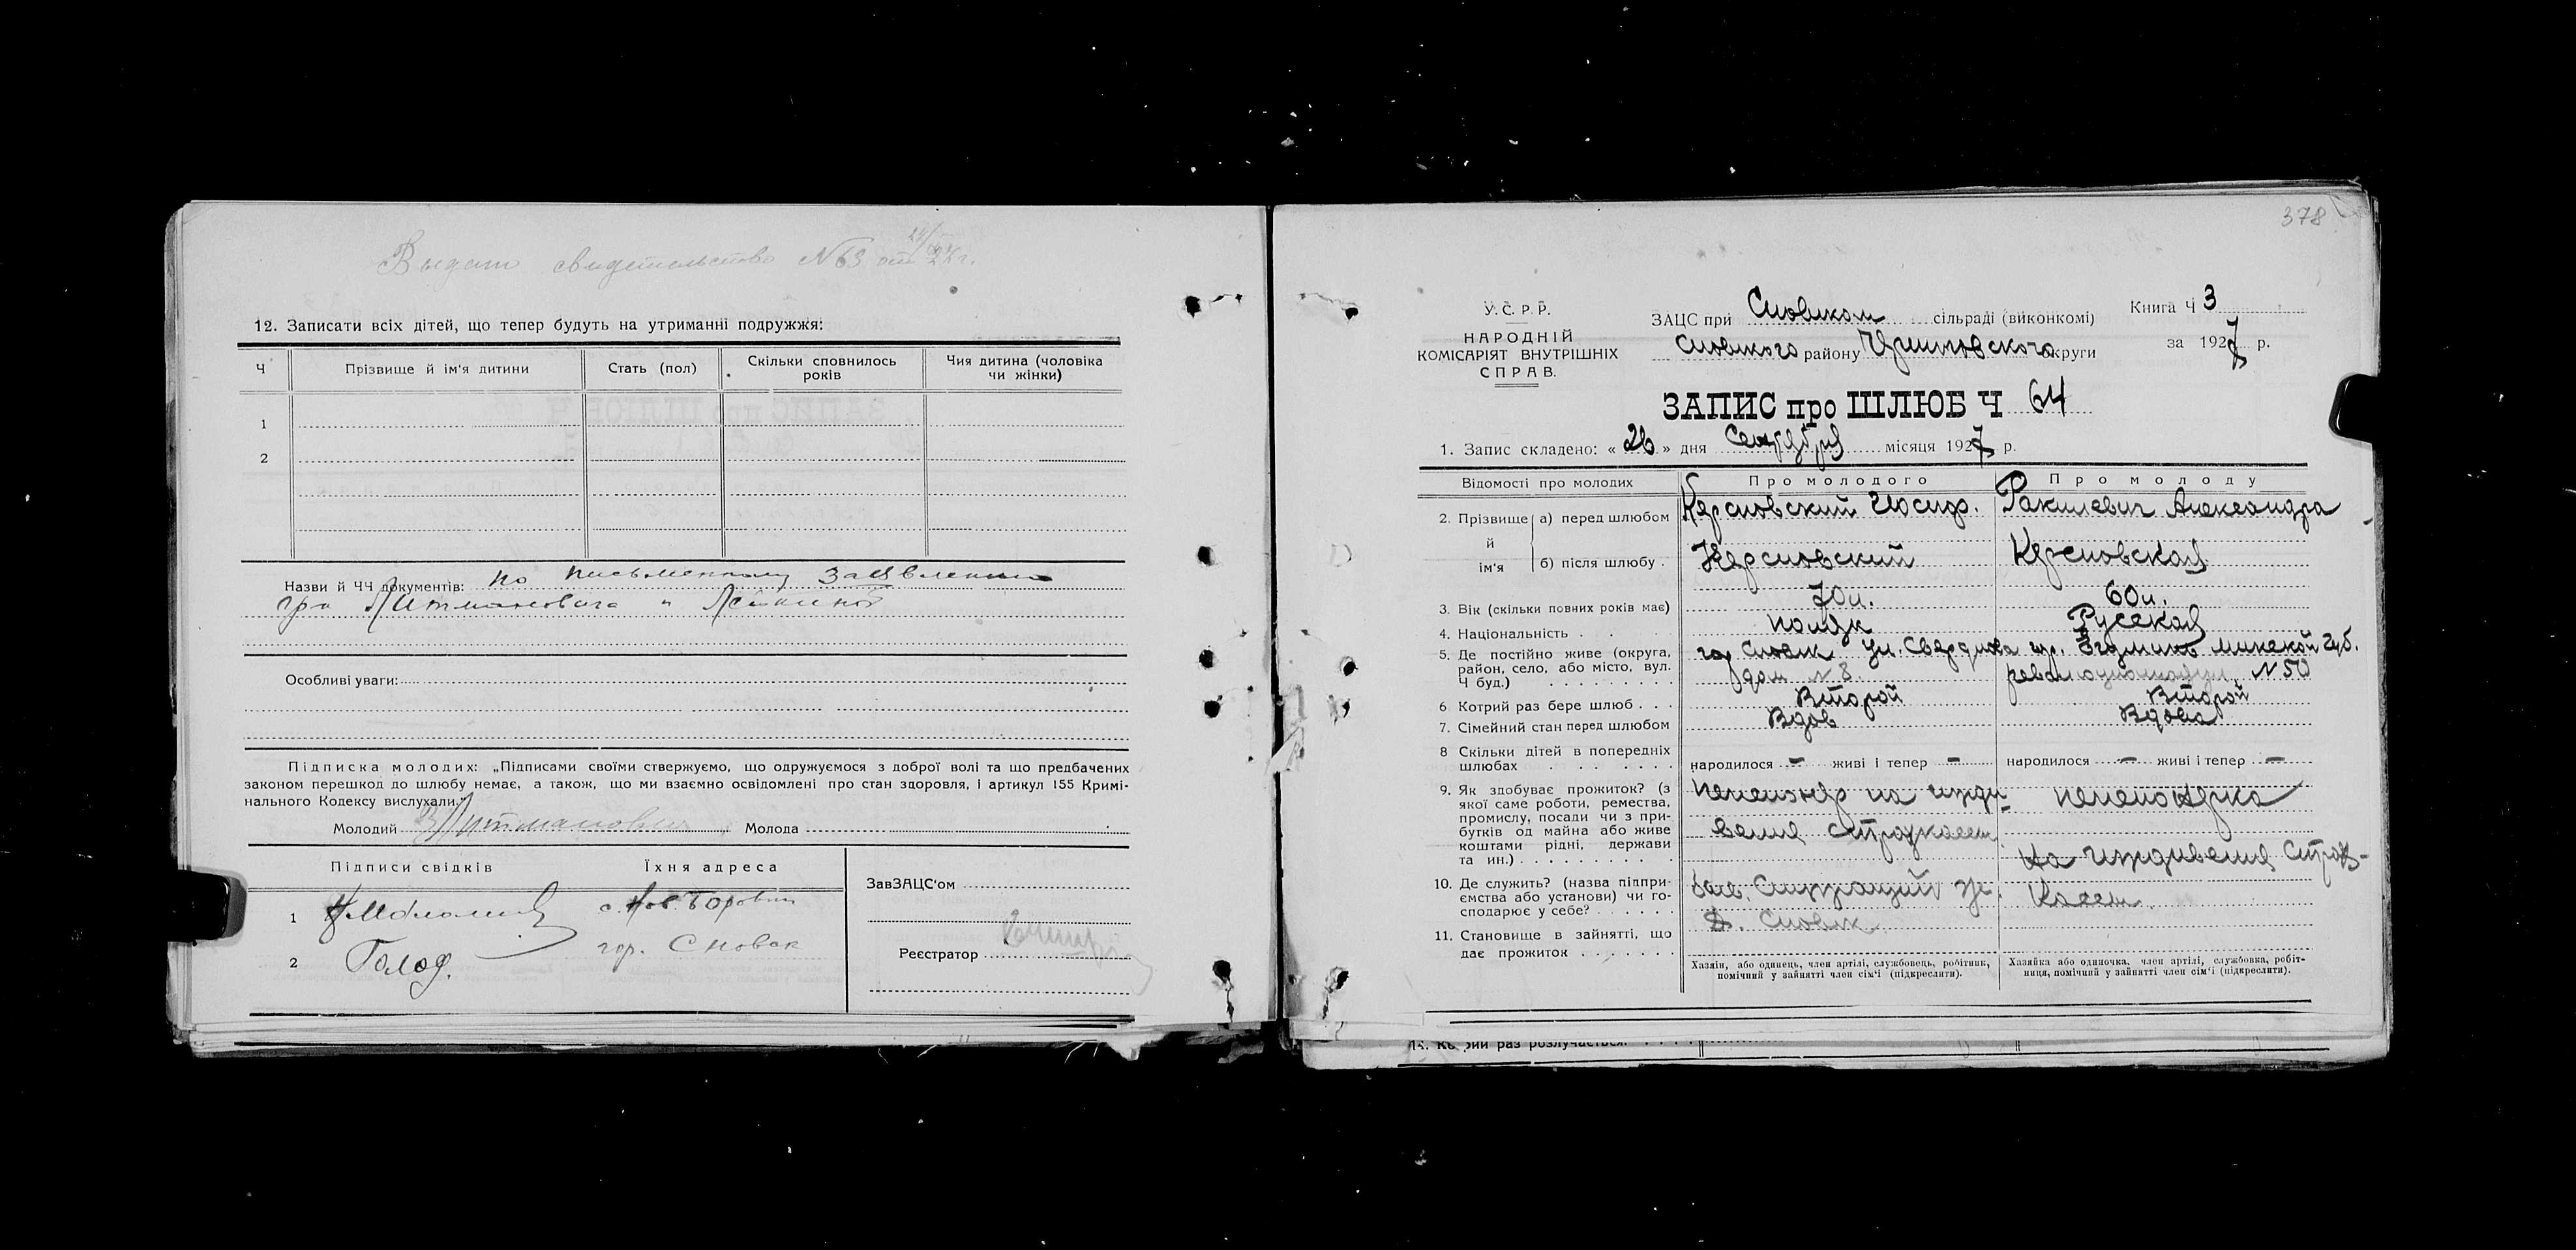 Выдано свидетельство №63 от
12. Записати всіх дітей, що тепер будуть на утриманні подружжя:
Ч Прізвище й ім'я дитини Стать (пол) Скільки сповнилось років Чия дитина (чоловіка чи жінки)
1
2
Назви й ЧЧ документів: по письменному заявлению
гр-н Литмановича и
Особливі уваги:
Підписка молодих: „Підписами своїми ствержуємо, що одружуємося з доброї волі та що предбачених
законом перешкод до шлюбу немає, а також, що ми взаємно освідомлені про стан здоровля, і артикул 155 Кримі-
нального Кодексу вислухали."
Молодий Литманович Молода
Підписи свідків Їхня адреса
1 с. Нов. Боровичи
2 Голод. гор. Сновск
ЗавЗАЦС'ом
Реєстратор
378
У.С.Р.Р.
НАРОДНІЙ
КОМІСАРІЯТ ВНУТРІШНІХ
СПРАВ.
ЗАЦС при Сновском сільраді (виконкомі)
Сновского району Черниговского округи
Книга Ч 3
за 1927 р.
ЗАПИС про ШЛЮБ Ч 64
1. Запис складено: « 26 » дня Сентября місяця 1927 р.
Відомості про молодих Про молодого Про молоду
2. Прізвище й ім'я а) перед шлюбом Керсновский Иосиф. Ракилевич Александра
б) після шлюбу. Керсновский Керсновская
3. Вік (скільки повних років має) 70 л. 60 л.
4. Національність . . поляк Русская
5. Де постійно живе (округа, район, село, або місто, вул. Ч буд.) гор Сновск ул. Свердлова дом №8. минской губ. №50
6 Котрий раз бере шлюб . . . Второй Второй
7. Сімейний стан перед шлюбом Вдов Вдова
8 Скільки дітей в попередніх шлюбах народилося — живі і тепер — народилося — живі і тепер —
9. Як здобуває прожиток? (з якої саме роботи, ремества, промислу, посади чи з прибутків од майна або живе коштами рідні, держави та ин.) Пенсионер на иждивении страхкассы пенсионерка на иждивении страх-
10. Де служить? (назва підприємства або установи) чи господарює у себе? кассы
11. Становище в зайнятті, що дає прожиток
Хазяін, або одинець, член артілі, службовець, робітник,
помічний у зайнятті член сім'ї (підкреслити).
Хазяйка або одиночка, член артілі, службовка, робіт-
ниця, помічний у зайнятті член сім'ї (підкреслити).
раз розлучається